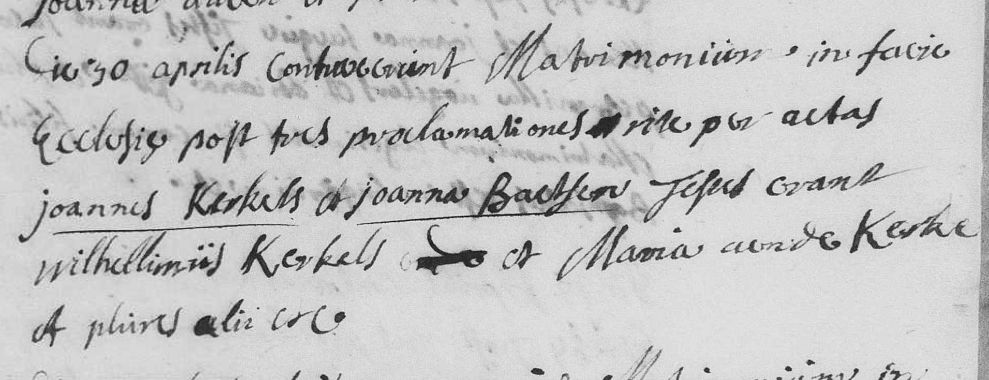 Die 30 aprilis Contraxerunt Matrimonium in facie
Ecclesię post tres proclamationes rite per actas
joannes Kerkels et joanna Baetsen Testes erant
wilhellimus Kerkels et Maria aende Kerke
et plures alii etc